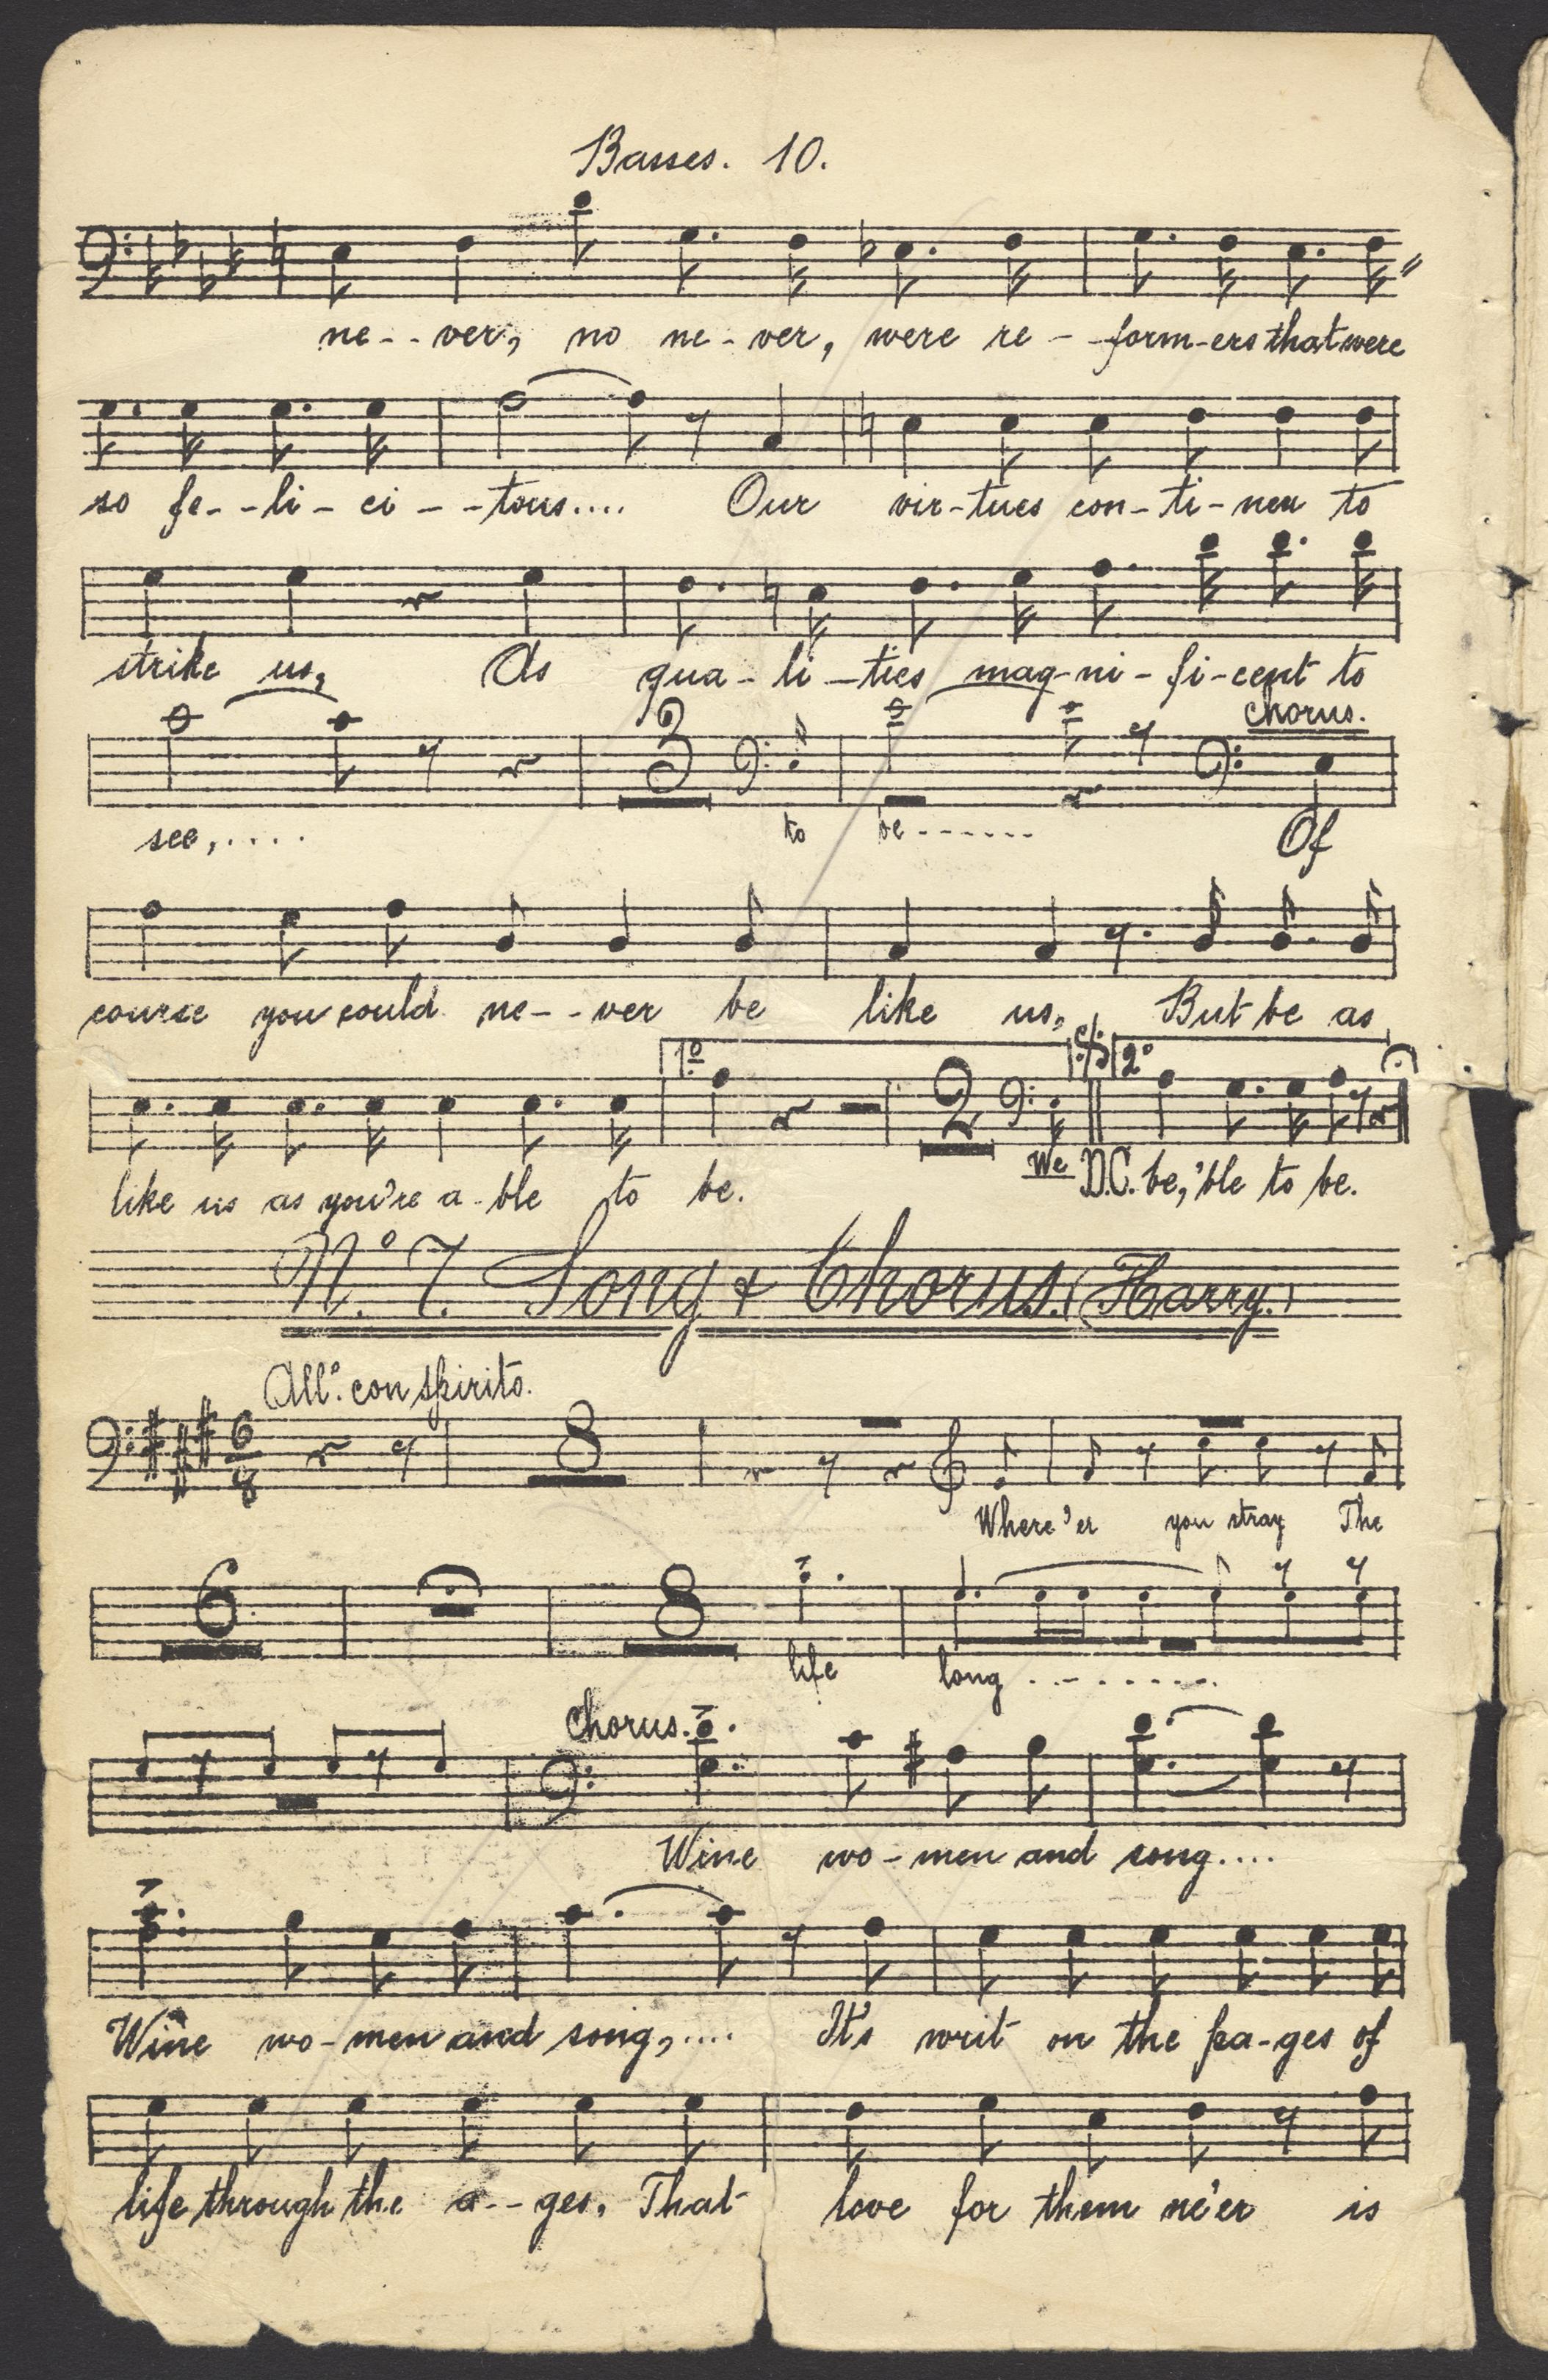 Basses. 10.
ne--ver, no ne-ver, were re--form-ers that were
so fe--li-ci--tous.... Our vir-tues con-ti-neu to
strike us, As qua-li-ties mag-ni-fi-cent to
chorus.
3
see,.... to be------ Of
course you could ne--ver be like us, But be as
1º 2 2º
like us as you're a-ble to be. We D.C. be,'ble to be.
Nº 7. Song & Chorus. (Harry.)
Allº. con spirito.
6 8 8
Where'er you stray The
6 8
life long .-.-.....
Chorus.
Wine wo-men and song....
Wine wo-men and song,.... It's writ on the pa-ges of
life through the a--ges, That love for them ne'er is